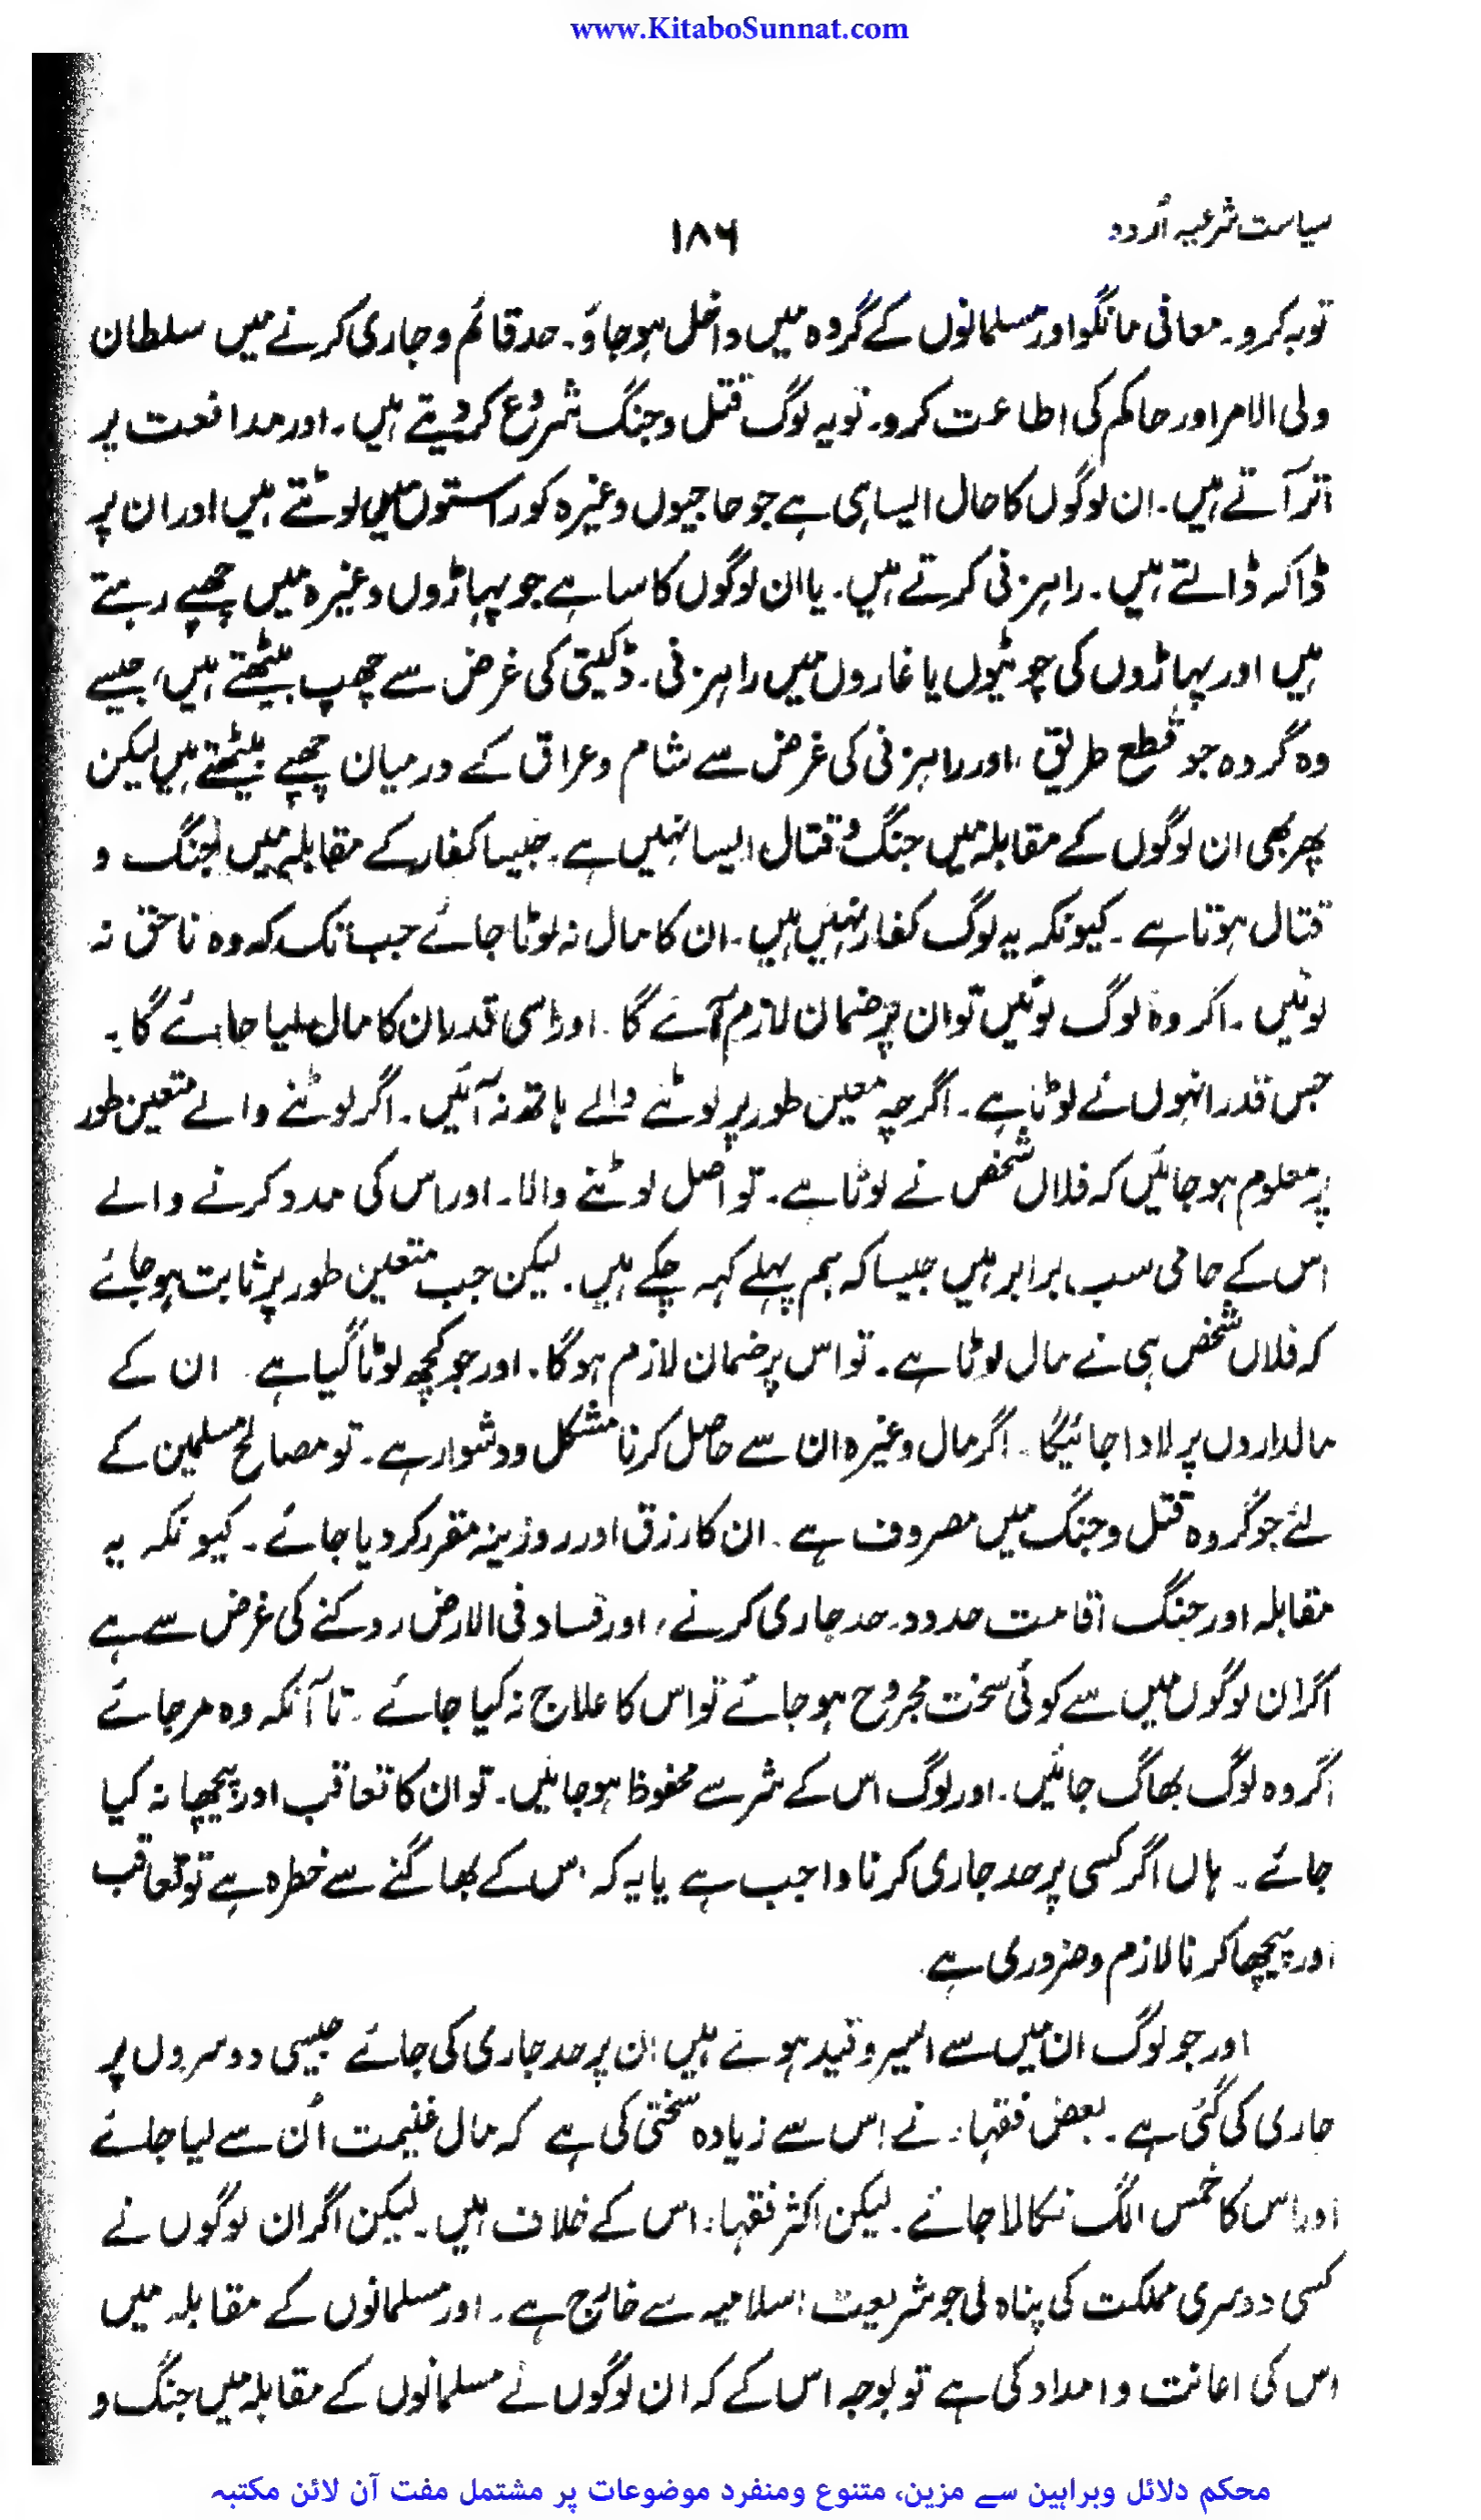 www.KitaboSunnat.com
سیاست شرعیہ اُردو
۱۸۶
توبہ کرو۔ معافی مانگو اور مسلمانوں کے گروہ میں داخل ہو جاؤ۔ حد قائم و جاری کرنے میں سلطان
ولی الامر اور حاکم کی اطاعت کرو۔ تو یہ لوگ قتل و جنگ شروع کر دیتے ہیں۔ اور مدافعت پر
اتر آتے ہیں۔ ان لوگوں کا حال ایسا ہی ہے جو حاجیوں وغیرہ کو راستوں میں لوٹتے ہیں اور ان پر
ڈاکہ ڈالتے ہیں۔ راہزنی کرتے ہیں۔ یا ان لوگوں کا سا ہے جو پہاڑوں وغیرہ میں چھپے رہتے
ہیں اور پہاڑوں کی چوٹیوں یا غاروں میں راہزنی۔ ڈکیتی کی غرض سے چھپ بیٹھتے ہیں، جیسے
وہ گروہ جو قطع طریق، اور راہزنی کی غرض سے شام و عراق کے درمیان چھپے بیٹھتے ہیں لیکن
پھر بھی ان لوگوں کے مقابلہ میں جنگ و قتال ایسا نہیں ہے۔ جیسا کفار کے مقابلہ میں جنگ و
قتال ہوتا ہے۔ کیونکہ یہ لوگ کفار نہیں ہیں۔ ان کا مال نہ لوٹا جائے جب تک کہ وہ ناحق نہ
لوٹیں۔ اگر وہ لوگ لوٹیں تو ان پر ضمان لازم آئے گا۔ اور اسی قدر ان کا مال لیا جائے گا۔
جس قدر انہوں نے لوٹا ہے۔ اگرچہ معین طور پر لوٹنے والے ہاتھ نہ آئیں۔ اگر لوٹنے والے متعین طور
پر معلوم ہو جائیں کہ فلاں شخص نے لوٹا ہے۔ تو اصل لوٹنے والا۔ اور اس کی مدد کرنے والے
اس کے حامی سب برابر ہیں جیسا کہ ہم پہلے کہہ چکے ہیں۔ لیکن جب متعین طور پر ثابت ہو جائے
کہ فلاں شخص ہی نے مال لوٹا ہے۔ تو اس پر ضمان لازم ہوگا۔ اور جو کچھ لوٹا گیا ہے۔ ان کے
مالداروں پر لادا جائیگا۔ اگر مال وغیرہ ان سے حاصل کرنا مشکل و دشوار ہے۔ تو مصالح مسلمین کے
لئے جو گروہ قتل و جنگ میں مصروف ہے۔ ان کا رزق اور روزینہ مقرر کر دیا جائے۔ کیونکہ یہ
مقابلہ اور جنگ اقامت حدود۔ حد جاری کرنے، اور فساد فی الارض روکنے کی غرض سے ہے
اگر ان لوگوں میں سے کوئی سخت مجروح ہو جائے تو اس کا علاج نہ کیا جائے۔ تا آنکہ وہ مر جائے
اگر وہ لوگ بھاگ جائیں۔ اور لوگ اس کے شر سے محفوظ ہو جائیں۔ تو ان کا تعاقب اور پیچھا نہ کیا
جائے۔ ہاں اگر کسی پر حد جاری کرنا واجب ہے یا یہ کہ اس کے بھاگنے سے خطرہ ہے تو تعاقب
اور پیچھا کرنا لازم و ضروری ہے۔
اور جو لوگ ان میں سے اسیر و قید ہوئے ہیں ان پر حد جاری کی جائے جیسی دوسروں پر
جاری کی گئی ہے۔ بعض فقہاء نے اس سے زیادہ سختی کی ہے کہ مال غنیمت اُن سے لیا جائے
اور اس کا خمس الگ نکالا جائے۔ لیکن اکثر فقہاء اس کے خلاف ہیں۔ لیکن اگر ان لوگوں نے
کسی دوسری مملکت کی پناہ لی جو شریعت اسلامیہ سے خارج ہے۔ اور مسلمانوں کے مقابلہ میں
اس کی اعانت و امداد کی ہے تو بوجہ اس کے کہ ان لوگوں نے مسلمانوں کے مقابلہ میں جنگ و
محکم دلائل وبراہین سے مزین، متنوع ومنفرد موضوعات پر مشتمل مفت آن لائن مکتبہ